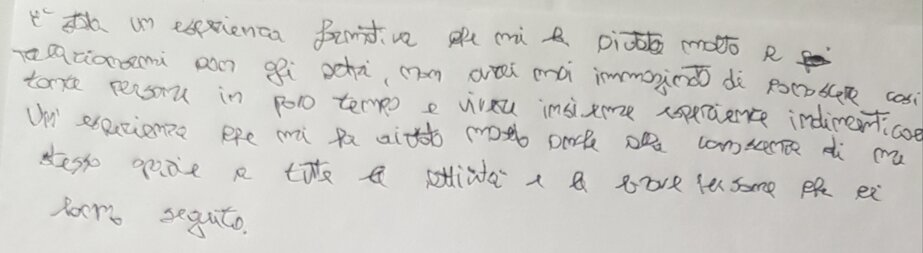 E' stata un esperienza formativa che mi ha aiutato molto a
relazionarmi con gli altri, non avrei mai immaginato di conoscere così
tante persone in poco tempo e vivere insieme esperienze indimenticab
Un' esperienza che mi ha aiutato molto anche alla conoscenza di me
stesso grazie a tutte le attività e le brave persone che ci
hanno seguito.